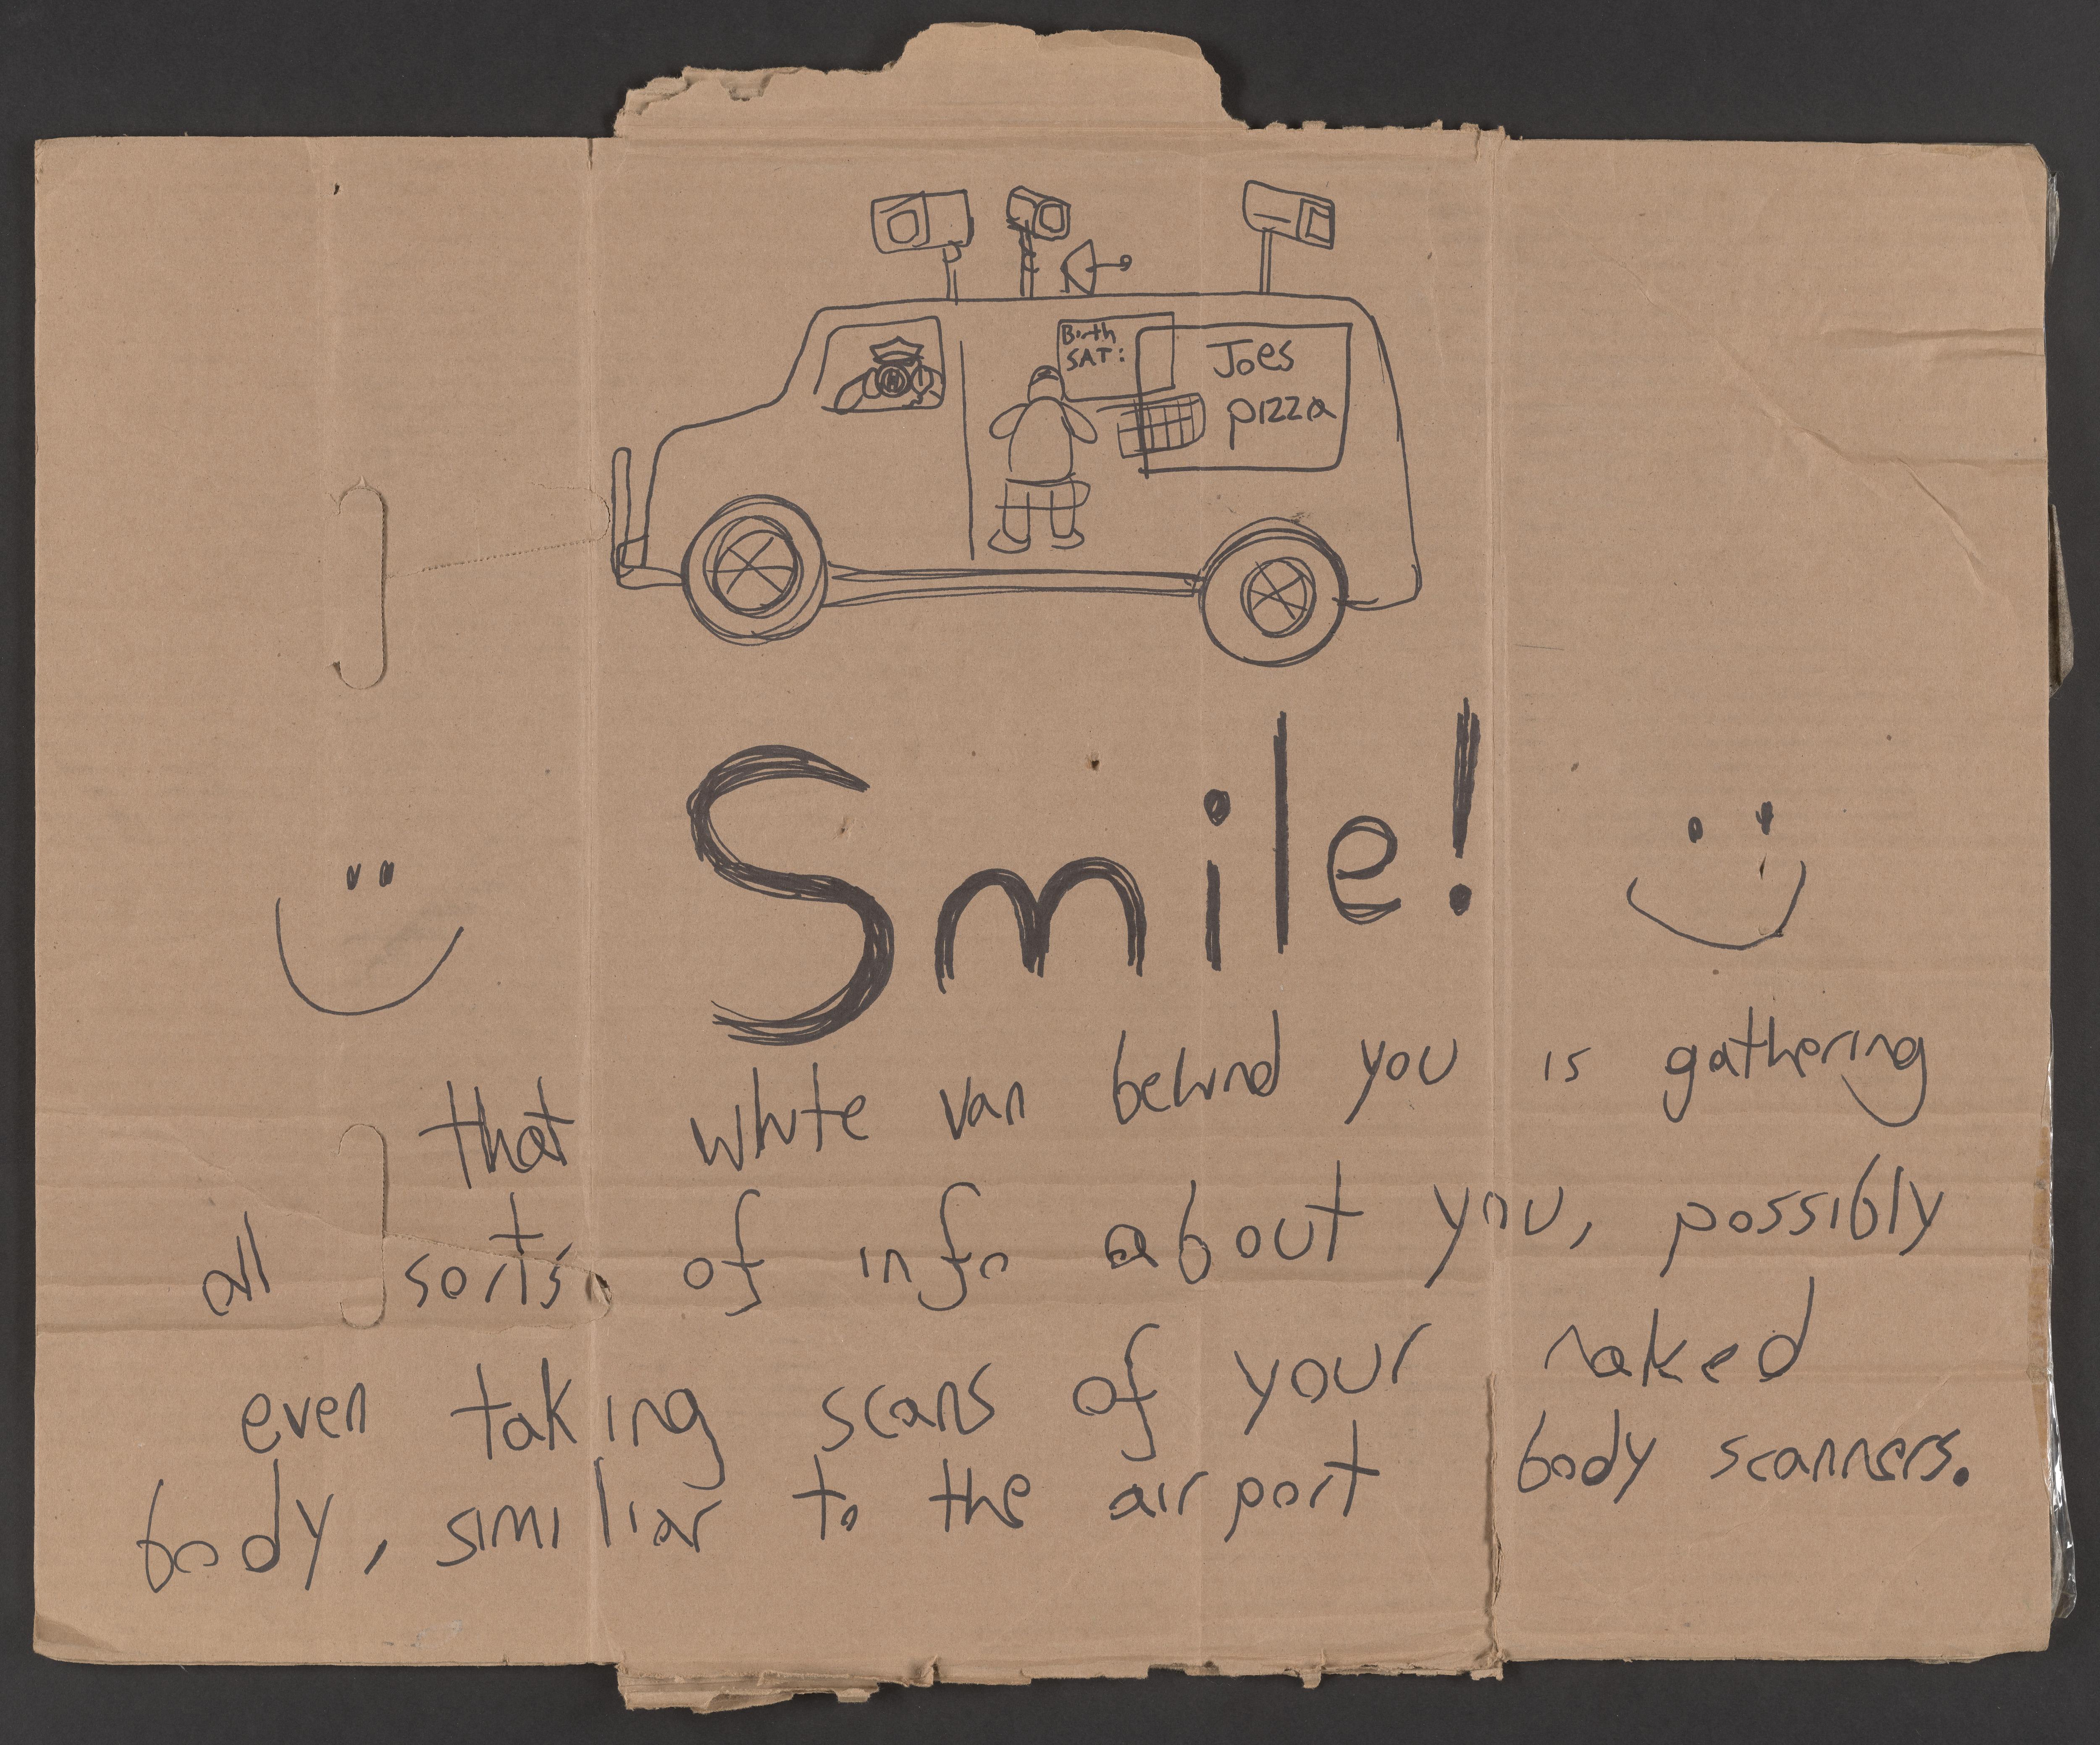 Birth
SAT:
Joes
pizza
Smile!
that white van behind you is gathering
all sorts of info about you, possibly
even taking scans of your naked
body, similiar to the airport body scanners.